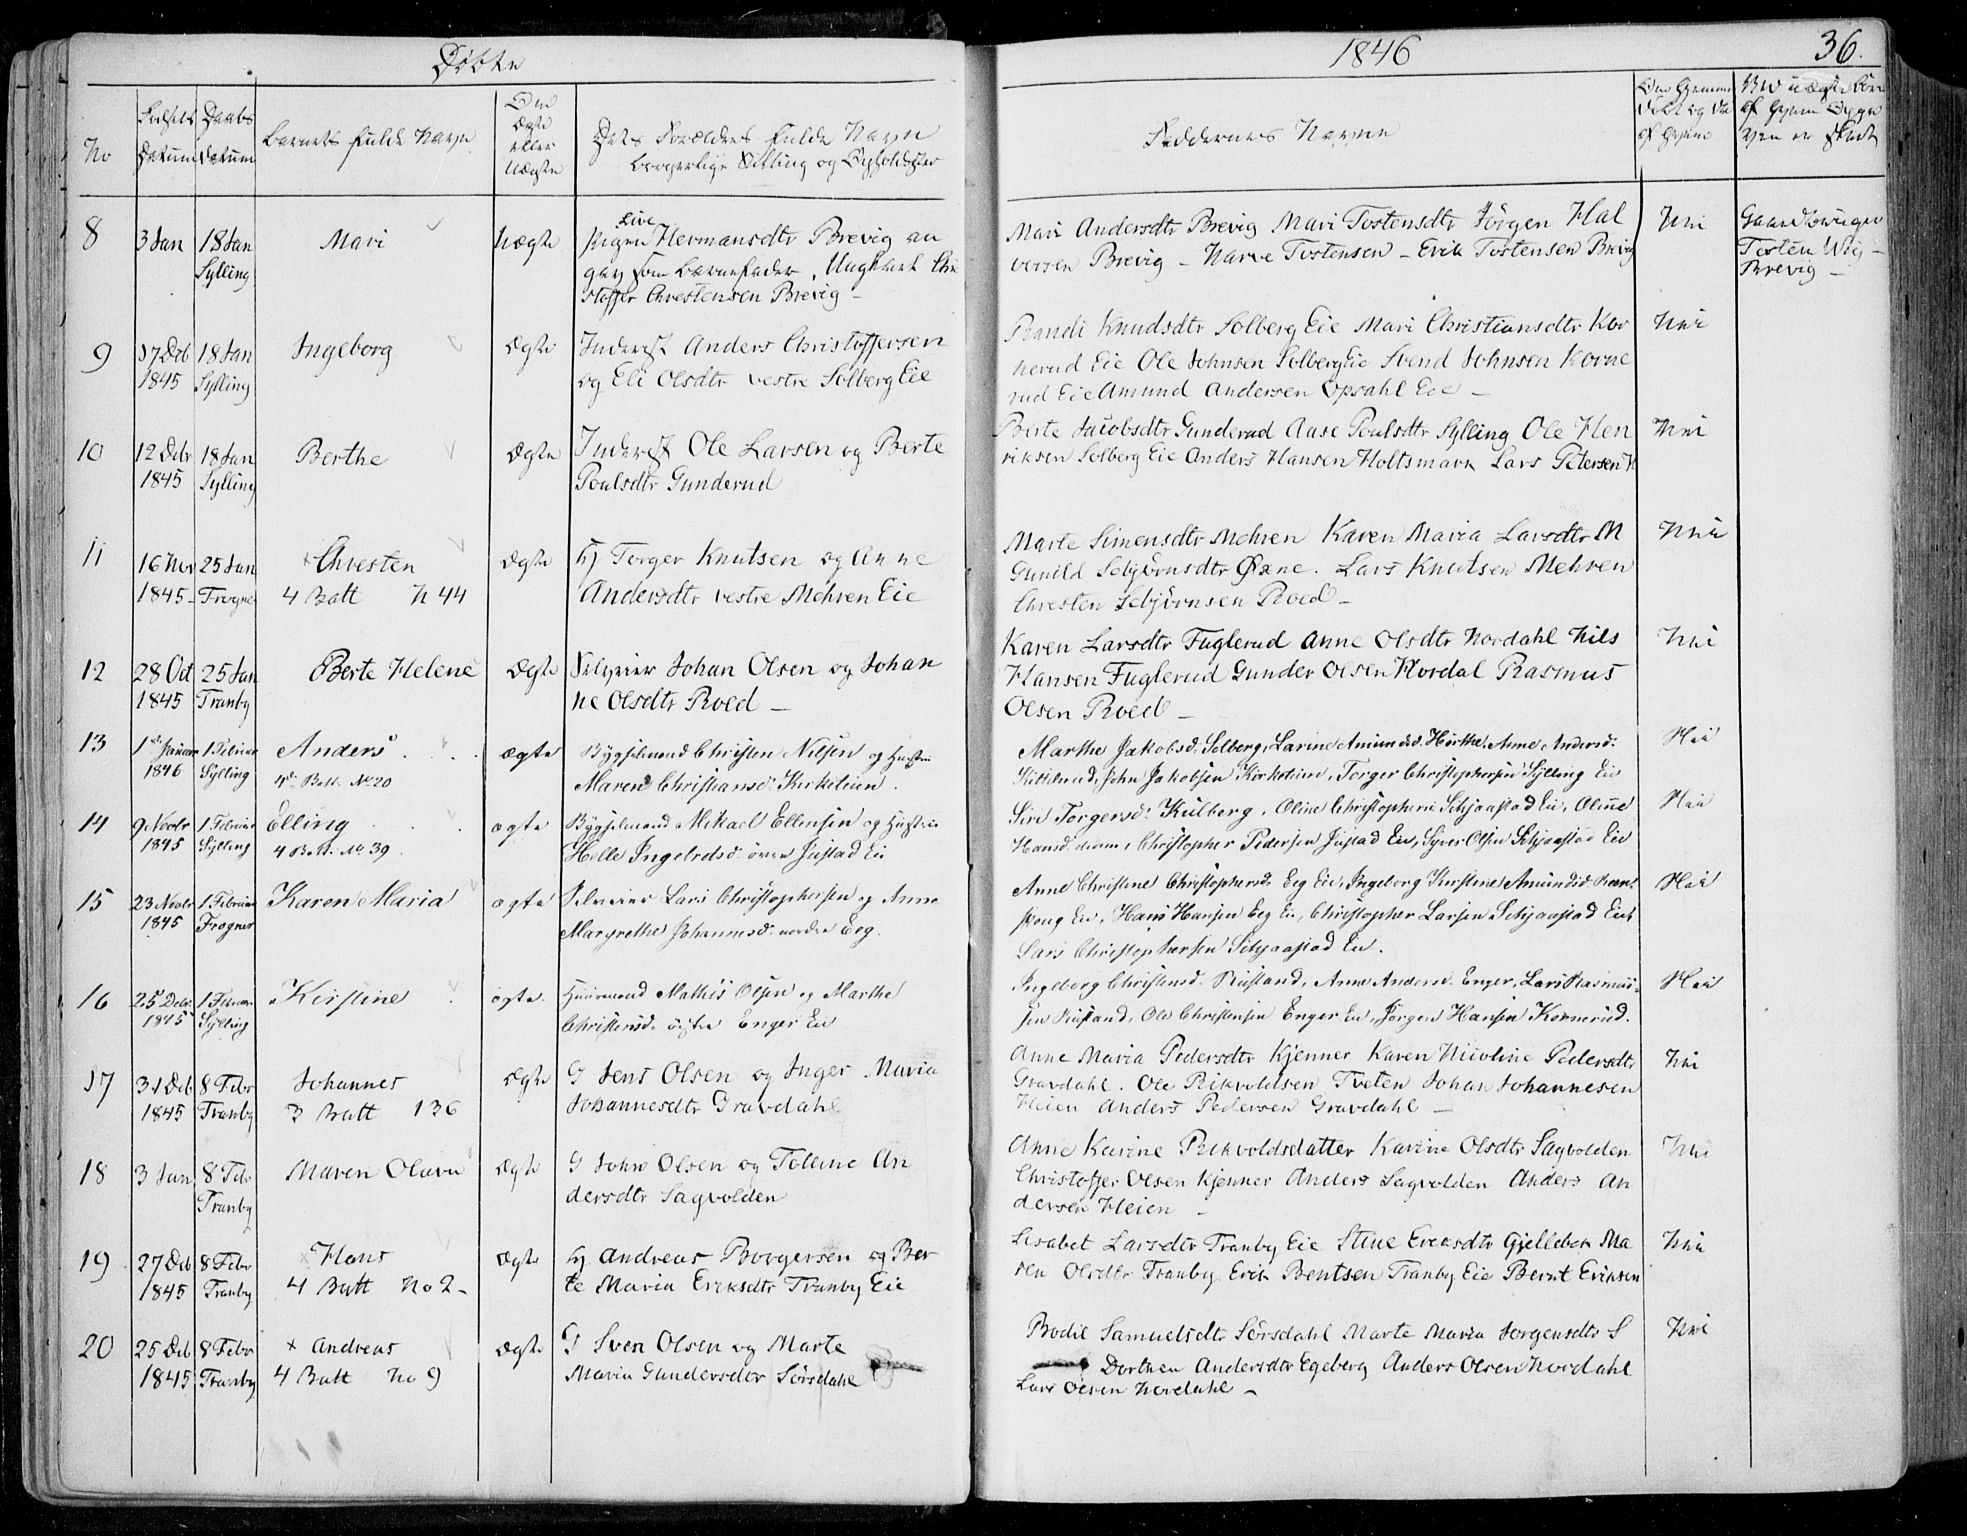 Døbte
1846
36.
No
Fødsels Datum
Daabs Datum
Barnets fulde Navn
Om ægte eller Uægte
Dets Forældres fulde Navn
borgerlige Stilling og Opholdster
Faddernes Navne
Om Hjemme døbt og da af Hvem
8
3 Jan
18 Jan
Sylling
Mari
Uægte
Live
Pigen Hermansdtr Brevig an
gav som Barnefader, Ungkarl Chri
stoffer Chrestensen Brevig –
Mari Andersdtr Brevig Mari Tostensdtr Jörgen Hal
vorsen Brevig – Narve Tostensen – Erik Tostensen Brevig
Nei
Gaardbruger
Tosten
Brevig –
9
17 Deb
1845
18 Jan
Sylling
Ingeborg
Ægte
Inderst Anders Christoffersen
og Eli Olsdtr vestre Solberg Eie
Randi Knudsdtr Solberg Eie Mari Christiansdtr Kor
nerud Eie Ole Johnsen Solberg Eie Svend Johnsen Korne
rud Eie Amund Andersen Opsahl Eie –
Nei
10
12 Debr
1845
18 Jan
Sylling
Berthe
Ægte
Inderst Ole Larsen og Berte
Poulsdtr Gunderud
Berte Jacobsdtr Gunderud Aase Poulsdtr Sylling Ole Hen
riksen Solberg Eie Anders Hansen Holtsmark Lars Petersen H
Nei
11
16 Nov
1845 –
25 Jan
Frogner
× Chresten
4 Batt N 44
Ægte
Hj Torger Knutsen og Anne
Andersdtr vestre Mehren Eie
Marte Simensdtr Mehren Karen Maria Larsdtr M
Gunild Sebjörnsdtr Øxne. Lars Knutsen Mehren
Chresten Sebjörnsen Roed –
Nei
12
28 Oct
1845
25 Jan
Tranby
Berte Helene
Ægte
Selveier Johan Olsen og Johan
ne Olsdtr Roed –
Karen Larsdtr Fuglerud Anne Olsdtr Nordahl Nils
Hansen Fuglerud Gunder Olsen Nordal Rasmus
Olsen Roed –
Nei
13
1ste Januar
1846
1 Februar
Sylling
Anders
4de Batt. No 20
ægte
Bygselmand Christen Nilsen og Hustru
Maren Christiansd. Kirketeien.
Marthe Jakobsd. Solberg, Larine Amundsd. Hörthe, Anne Andersd.
John Jakobsen Kirketeien, Torger Christophersen Sylling Eie
Nei
14
9 Novbr
1845
1 Februar
Sylling
Elling
4 Batt. No 39.
ægte
Bygselmand Mikael Ellensen og Hustru
Helle Ingebretsd. övre Justad Eie
Siri Torgersd. Kulberg, Oline Christophersd. Schjaastad Eie, Oline
Hansd. Christopher Pedersen Justad Eie, Syver Olsen Schjaastad Eie
Nei
15
23 Novbr
1845
1 Februar
Frogner
Karen Maria
ægte
Selveier Lars Christophersen og Anne
Margrethe Johannesd. nordre Eeg.
Anne Christine Christophersd. Eeg Eie, Ingeborg Kirstine Amundsd.
skoug Eie, Hans Hansen Eeg Eie, Christopher Larsen Schjaastad Eie &
Lars Christophersen Schjaastad Eie.
Nei
16
25 Debr.
1845
1 Februar
Sylling
Kirstine
ægte.
Huusmand Mathis Olsen og Marthe
Christensd. östre Enger Eie
Ingeborg Christensd. Rustand, Anne Andersd. Enger, Lars Rasmus-
sen Rustand, Ole Christensen Enger Eie, Jörgen Hansen Kornerud.
Nei
17
31 Deb
1845
8 Febr
Tranby
Johannes
3 Batt 136
Ægte
G Jens Olsen og Inger Maria
Johannesdtr Gravdahl
Anne Maria Pedersdtr Kjenner Karen Nicoline Pedersdtr
Gravdahl. Ole Rikvoldsen Tveten Johan Johannesen
Heien Anders Pedersen Gravdahl –
Nei
18
3 Jan
8 Febr
Tranby
Maren Olava
Ægte
G John Olsen og Tolline An
dersdtr Sagvolden
Anne Karine Rikvoldsdatter Karine Olsdtr Sagvolden
Christoffer Olsen Kjenner Anders Sagvolden Anders An
dersen Heien –
Nei
19
27 Deb
1845
8 Febr
Tranby
× Hans
4 Batt No 2 –
Ægte
Hj Andreas Borgersen og Ber
te Maria Eriksdtr Tranby Eie
Lisabet Larsdtr Tranby Eie Stine Eriksdtr Gjellebek Ma
ren Olsdtr Tranby Erik Bentsen Tranby Eie Bernt Eriksen
Nei
20
25 Deb
1845
8 Febr
Tranby
× Andreas
4 Batt No 9
Ægte
G Sven Olsen og Marte
Maria Gundersdtr Sörsdahl
Bodil Samuelsdtr Sörsdahl Marte Maria Jorgensdtr S
Dorthea Andersdtr Egeberg Anders Olsen Nordahl
Lars Olsen Nordahl –
Nei